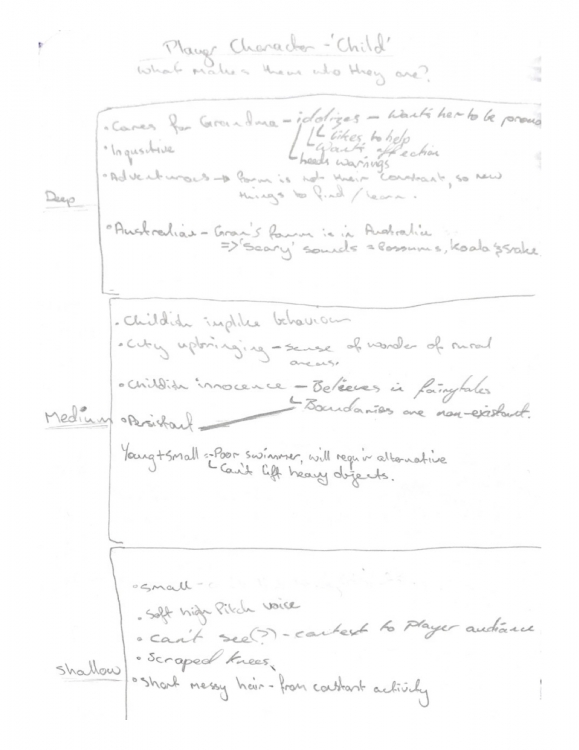 Player Character - 'Child'
What makes them who they are?
• Cares for Grandma - idolizes - Wants her to be proud
Likes to help
Wants affection
heeds warnings
• Inquisitive
• Adventurous → Farm is not their constant, so new
things to find / learn.
Deep
• Australian - Gran's farm is in Australia
=> 'scary' sounds = Possums, Koala's, snake
• Childish implike behaviour
• City upbringing - sense of wonder of rural
areas.
• Childish innocence - Believes in fairytales
Boundaries are non-existant.
Medium
• Persistant
Young + small - Poor swimmer, will requir alternative
Can't lift heavy objects.
• Small -
• Soft high Pitch voice
• Can't see(?) - context to Player audiance
• Scraped Knees
Shallow
• Short messy hair - from constant activity